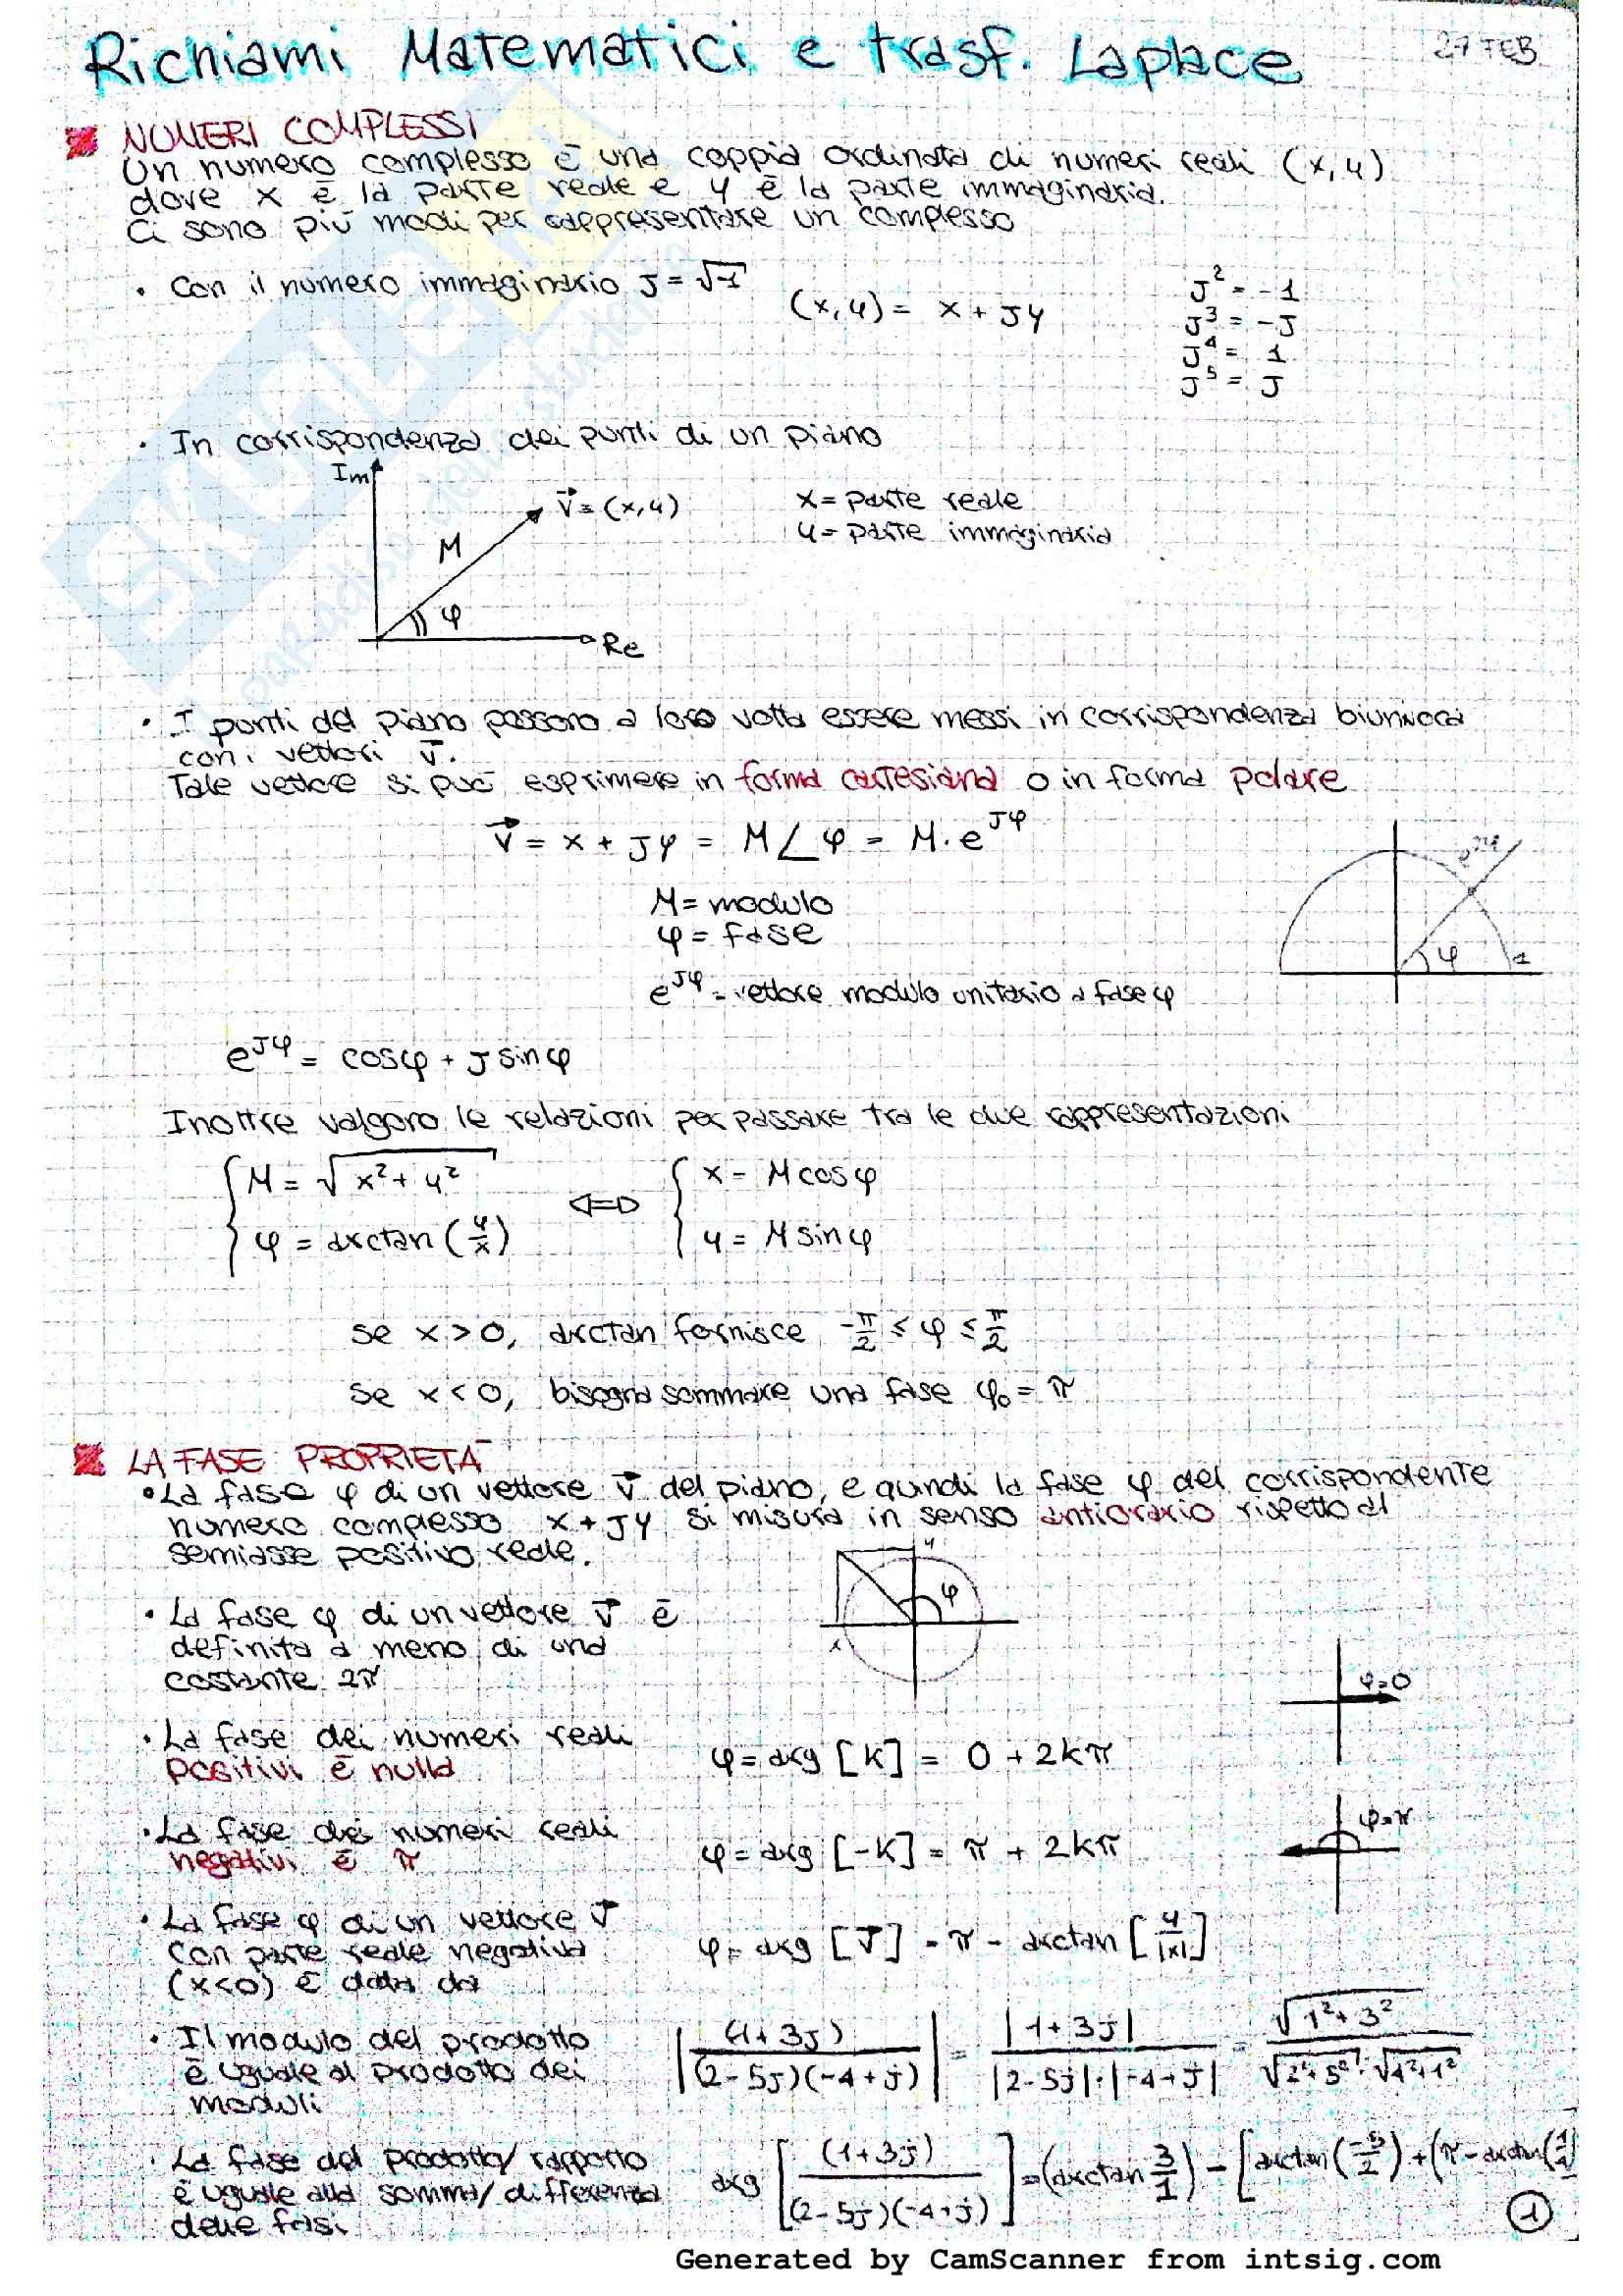 Richiami Matematici e trasf. Laplace
27 FEB
NUMERI COMPLESSI
Un numero complesso è una coppia ordinata di numeri reali (x,y)
dove x è la parte reale e y è la parte immaginaria.
Ci sono più modi per rappresentare un complesso
• Con il numero immaginario J = √-1
(x,y) = x + Jy
J² = -1
J³ = -J
J⁴ = 1
J⁵ = J
• In corrispondenza dei punti di un piano
Im
V⃗ = (x,y)
M
φ
Re
x = parte reale
y = parte immaginaria
• I punti del piano possono a loro volta essere messi in corrispondenza biunivoca
con i vettori V⃗.
Tale vettore si può esprimere in forma cartesiana o in forma polare
V⃗ = x + Jy = M∠φ = M·e^Jφ
M = modulo
φ = fase
e^Jφ = vettore modulo unitario a fase φ
e^Jφ
φ
1
e^Jφ = cosφ + J sinφ
Inoltre valgono le relazioni per passare tra le due rappresentazioni
{ M = √x²+y²
φ = arctan(y/x)
⇔
{ x = M cosφ
y = M sinφ
se x > 0, arctan fornisce -π/2 ≤ φ ≤ π/2
se x < 0, bisogna sommare una fase φ₀ = π
LA FASE: PROPRIETÀ
• La fase φ di un vettore V⃗ del piano, e quindi la fase φ del corrispondente
numero complesso x + Jy si misura in senso antiorario rispetto al
semiasse positivo reale.
y
φ
x
• La fase φ di un vettore V⃗ è
definita a meno di una
costante 2π
• La fase dei numeri reali
positivi è nulla
φ = arg [K] = 0 + 2kπ
φ=0
• La fase dei numeri reali
negativi è π
φ = arg [-K] = π + 2kπ
φ=π
• La fase φ di un vettore V⃗
con parte reale negativa
(x<0) è data da
φ = arg [V⃗] = π - arctan [y/|x|]
• Il modulo del prodotto
è uguale al prodotto dei
moduli
|(1+3j)/((2-5j)(-4+j))| = |1+3j|/(|2-5j|·|-4+j|) = √1²+3²/(√2²+5²·√4²+1²)
• La fase del prodotto/rapporto
è uguale alla somma/differenza
delle fasi
arg [(1+3j)/((2-5j)(-4+j))] = (arctan 3/1) - [arctan(-5/2) + (π - arctan(1/4)]
1
Generated by CamScanner from intsig.com
SKUOLA.net
il paradiso dello studente